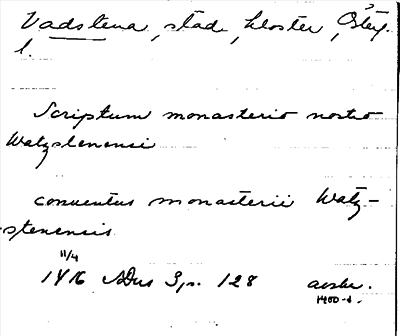 Vadstena, stad, kloster, Östg.
l.
Scriptum monasterio nostro
Watzstenensi
conventus monasterii Watz-
stenensis
11/4
1416 ADus 3, s. 128 avskr.
1400-t.